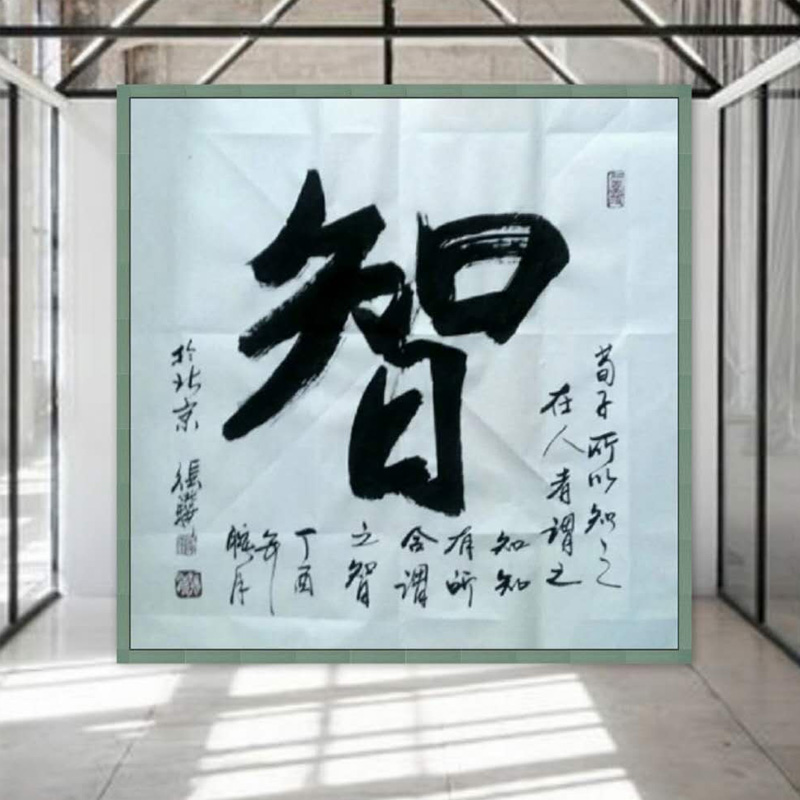 智
荀子所以知之
在人者谓之
知知
有所
合谓
之智
丁酉
年
腊月
於北京 張